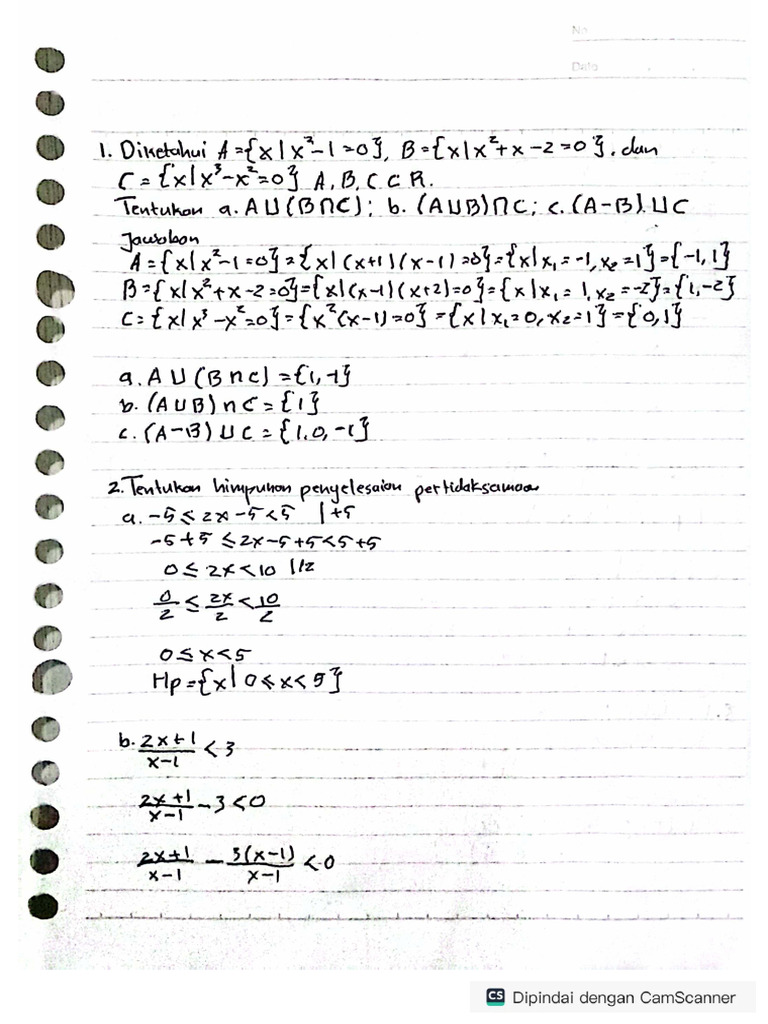 No
Date
1. Diketahui A={x|x²-1=0}, B={x|x²+x-2=0}. dan
C={x|x³-x²=0} A, B, C ⊂ R.
Tentukan a. A U (B∩C); b. (AUB)∩C; c. (A-B) U C
Jawaban
A={x|x²-1=0}={x|(x+1)(x-1)=0}={x|x₁=-1, x₂=1}={-1,1}
B={x|x²+x-2=0}={x|(x-1)(x+2)=0}={x|x₁=1, x₂=-2}={1,-2}
C={x|x³-x²=0}={x²(x-1)=0}={x|x₁=0, x₂=1}={0,1}
a. A U (B∩C)={1,-1}
b. (AUB)∩C={1}
c. (A-B) U C={1,0,-1}
2. Tentukan himpunan penyelesaian pertidaksamaan
a. -5≤2x-5<5 |+5
-5+5≤2x-5+5<5+5
0≤2x<10 |/2
0/2≤2x/2<10/2
0≤x<5
Hp={x|0≤x<5}
b. 2x+1/x-1<3
2x+1/x-1-3<0
2x+1/x-1 - 3(x-1)/x-1<0
CS Dipindai dengan CamScanner